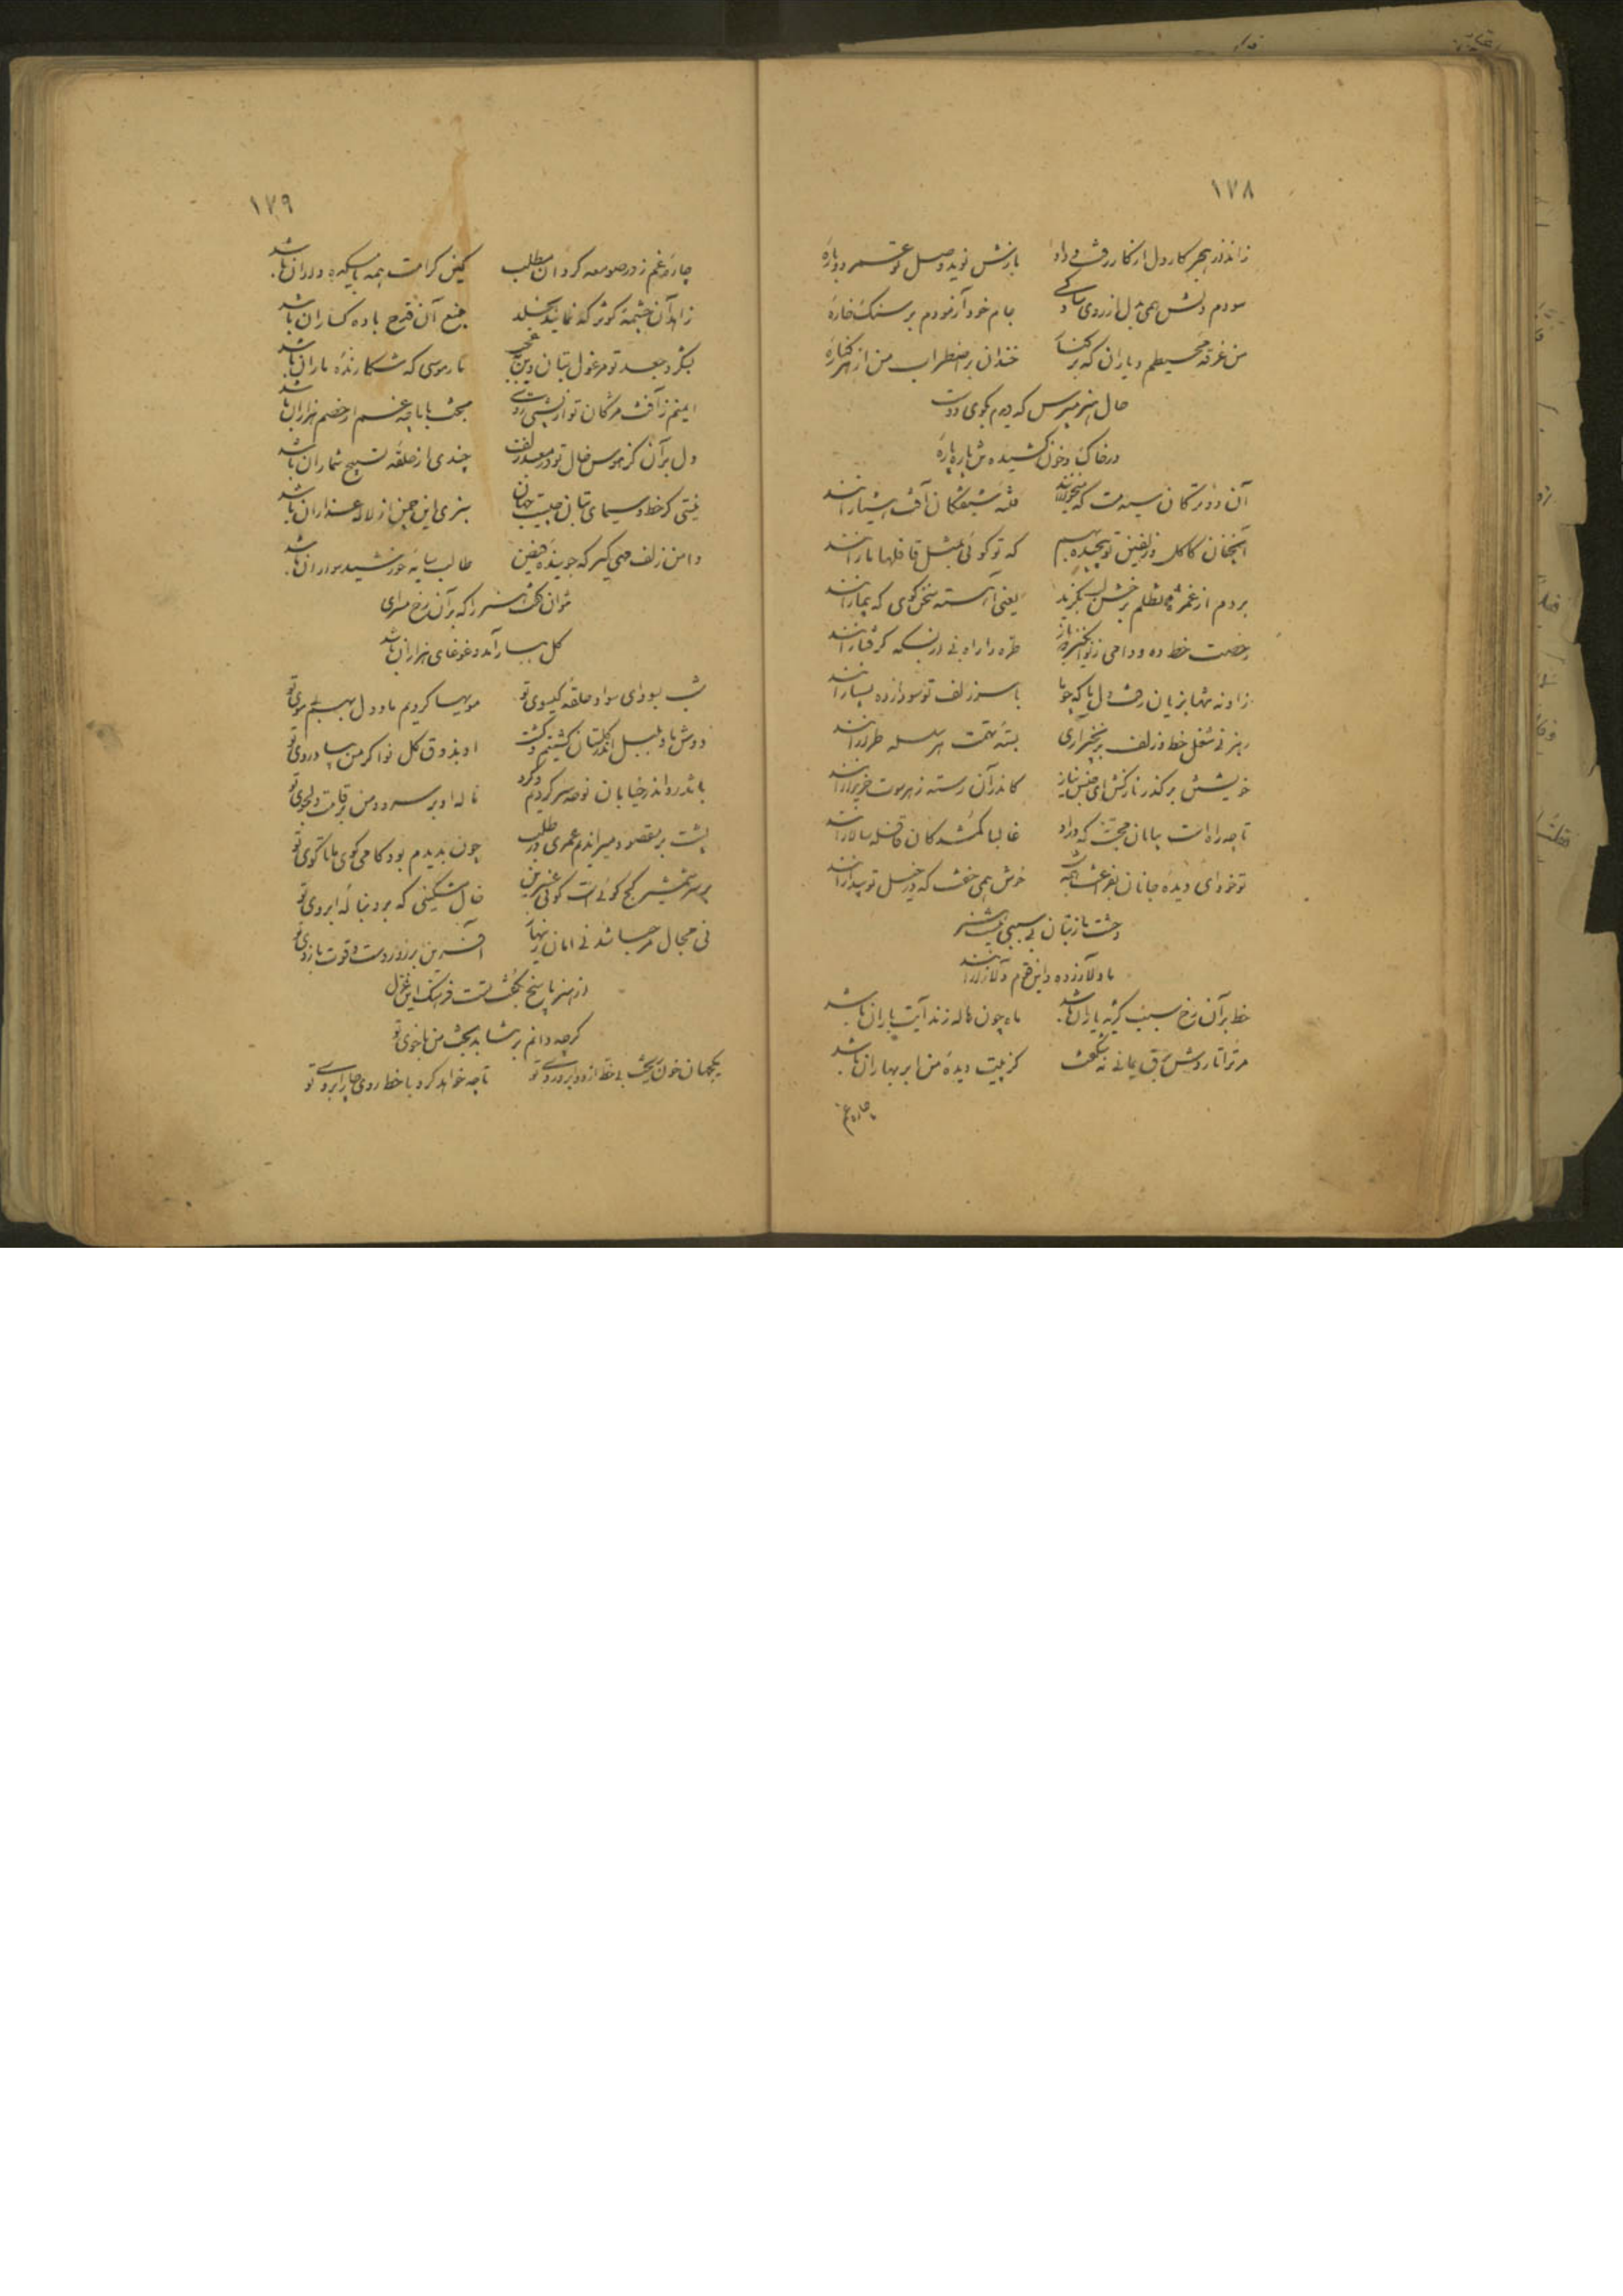 ۱۷۸
ز اندر هجر کار دل از کار رفت و داد بازش نوید وصل تو عمر دوباره
سودم دلش همی بدل از روی جام خود آزمودم بر سنک خاره
من غرقه محیطم و یاران که بر کنار خندان بر اضطراب من از هر کناره
حال هنر مپرس که دیدم بکوی دوست
در خاک و خون کشیده تن پاره پاره
آن دو ترکان سیه مست که میخوارانند فتنه شیفتکان آفت هشیارانند
آنچنان کاکل و زلفین تو پیچیده بهم که تو کوئی بمثل قافلها مارانند
بردم از غمزه تظلم برخش لب بکزید یعنی آهسته سخن کوی که بیمارانند
رخصت خط ده و دامی ز طره را راه نی از بسکه کرفتارانند
زاد نه تنها بزیان رفت دل ما که چو ما با سر زلف تو سودازده بسیارانند
هنر نی شغل خط و زلف بسته تهمت هر سلسله طرارانند
خویشتن بر کذر ناز کش ای جنس نیاز کاندر آن رسته ز هر سوت خریدارانند
تا چه راه است بیابان محبت که در او غالبا کمشدکان قافله سالارانند
تو خود ای دیده جانان خوش همی خفت که در خیل تو بیدارانند
وحشت از بتان بی سببی نیست هنر
ما دلآزرده و این قوم دلآزارانند
خط بر آن رخ سبب کریه یاران باشد ماه چون هاله زند آیت باران باشد
مر ترا تا روش برق یمانی نه شکفت کز پیت دیده من ابر بهاران باشد
چاره غم
۱۷۹
چاره غم ز در صومعه کرد آن مطلب کین کرامت همه با میکده داران باشد
زاهد آن چشمه کوثر که نمایند بخلد منبع آن قدح باده کساران باشد
بنکر و جعد تو مرغول بتان وین عجب نادر موسی که شکارنده ماران باشد
ایمنم ز آفت مژکان تو از پشتی بخت با با چه غم ار خصم هزاران باشد
دل بر آن کز هوس خال تو در معبد زلف چندی از حلقه تسبیح شماران باشد
نیتی کر خط و سیمای بتان چیست جهان سبزی این چمن از لاله عذاران باشد
دامن زلف همی کیر که جوینده فیض طالب سایه خورشید سواران باشد
نتوان کفت هنر را که بر آن رخ مسرای
کل ببار آمد و غوغای هزاران باشد
شب بسودای سواد حلقه کیسوی تو مویها کردیم ما و دل بهم بی موی تو
دوش ما و بلبل اندر کلستان کشتیم و کشت او بذوق کل نواکر من بیاد روی تو
با تذرو اندر خیابان نوحه سر کردیم و کرد ناله او بر سرو و من بر قامت دلجوی تو
پشت بر مقصود میراندیم عمری در طلب چون بدیدم بود کامی کوی ما تا کوی تو
بر سر شمشیر کج کوئی است کوئی عنبرین خال مشکینی که بر دنباله ابروی تو
نی مجال مرحبا شد نی امان زینهار آفرین بر زور دست و قوت بازوی تو
از هنر پاسخ بکشت فرهنک این غزل
کرچه دانم بر نتابد بخت من با خوی تو
یکجهان خون ریخت بی خط از دو ابرو روی تو تا چه خواهد کرد با خط روی چار ابروی تو